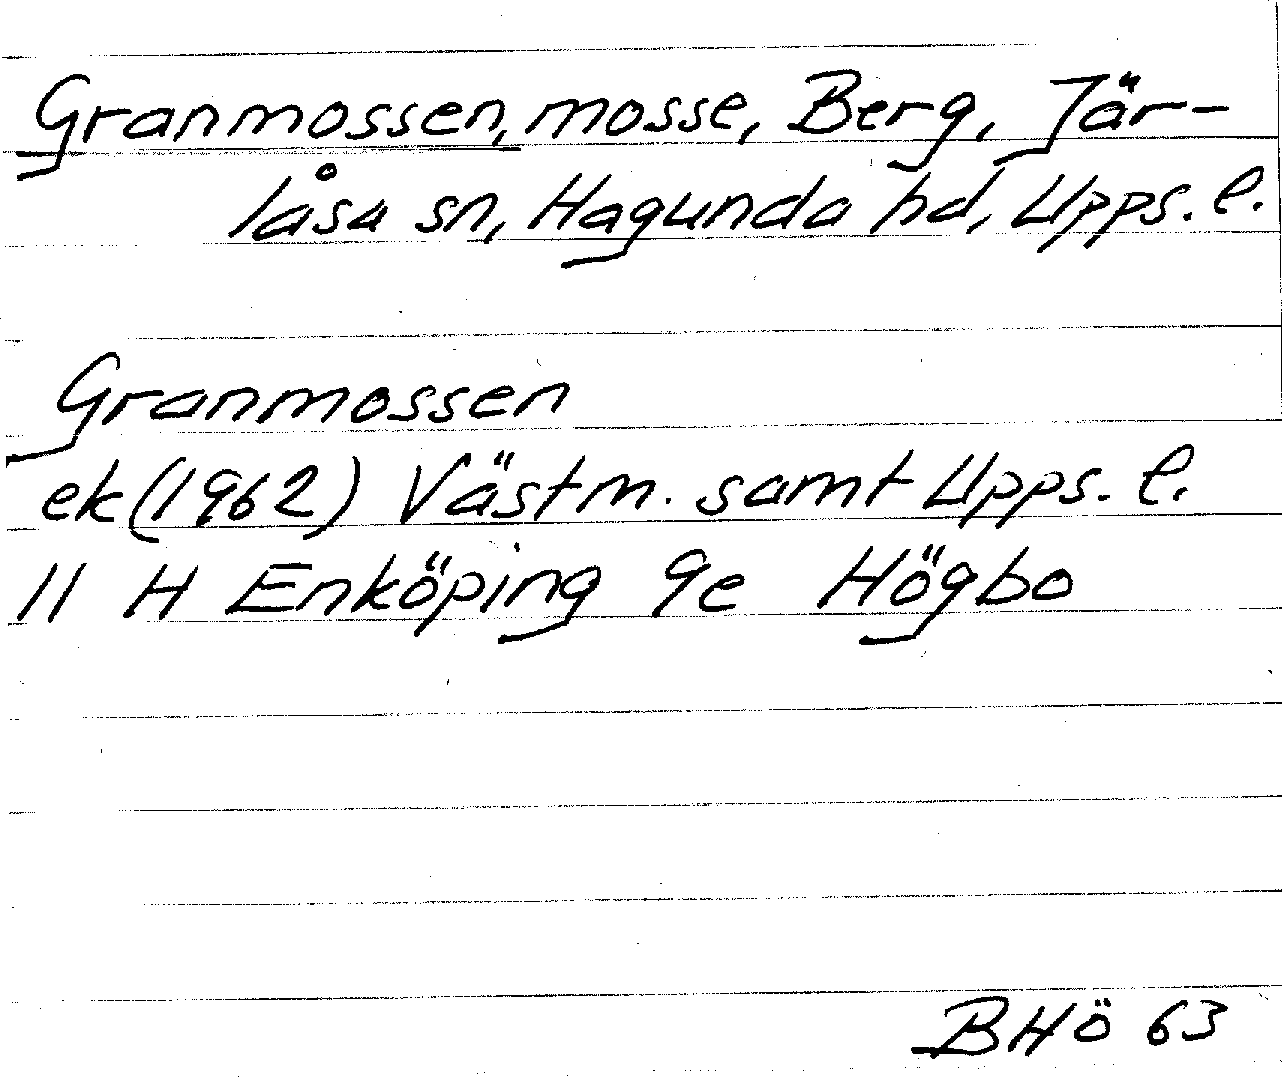 Granmossen, mosse, Berg, Jär-
låsa sn, Hagunda hd, Upps. l.
Granmossen
ek (1962) Västm. samt Upps. l.
11 H Enköping 9e Högbo
BHÖ 63